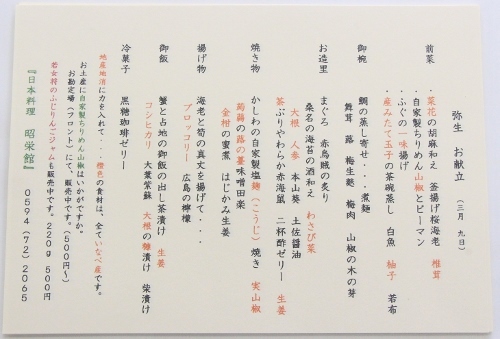 弥生 お献立 (三月 九日)
前菜 ・菜花の胡麻和え 釜揚げ桜海老 椎茸
・自家製ちりめん山椒とピーマン
・ふぐの一味揚げ
・産みたて玉子の茶碗蒸し 白魚 柚子 若布
御椀 鯛の蕗し寄せ・・・煮麺
舞茸 蕗 梅生麩 梅肉 山椒の木の芽
お造里 まぐろ 赤烏賊の炙り
桑名の海苔の酒和え わさび菜
大根 人参 本山葵 土佐醤油
茶ぶりやわらか赤海鼠 二杯酢ゼリー 生姜
焼き物 かしわの自家製塩麹(こうじ)焼き 実山椒
蒟蒻の蕗の薹味噌田楽
金柑の蜜煮 はじかみ生姜
揚げ物 海老と筍の真丈を揚げて・・・
ブロッコリー 広島の檸檬
御飯 蟹と占地の御飯の出し茶漬け 生姜
コシヒカリ 大葉紫蘇 大根の糠漬け 柴漬け
冷菓子 黒糖珈琲ゼリー
地産地消に力を入れて・・・橙色の食材は、全ていなべ産です。
お土産に自家製ちりめん山椒はいかがですか。
お勘定場(フロント)にて、販売中です。(500円〜)
若女将のふじりんごジャムも販売中です。220g 500円
『日本料理 昭栄館』 0594(72)2065